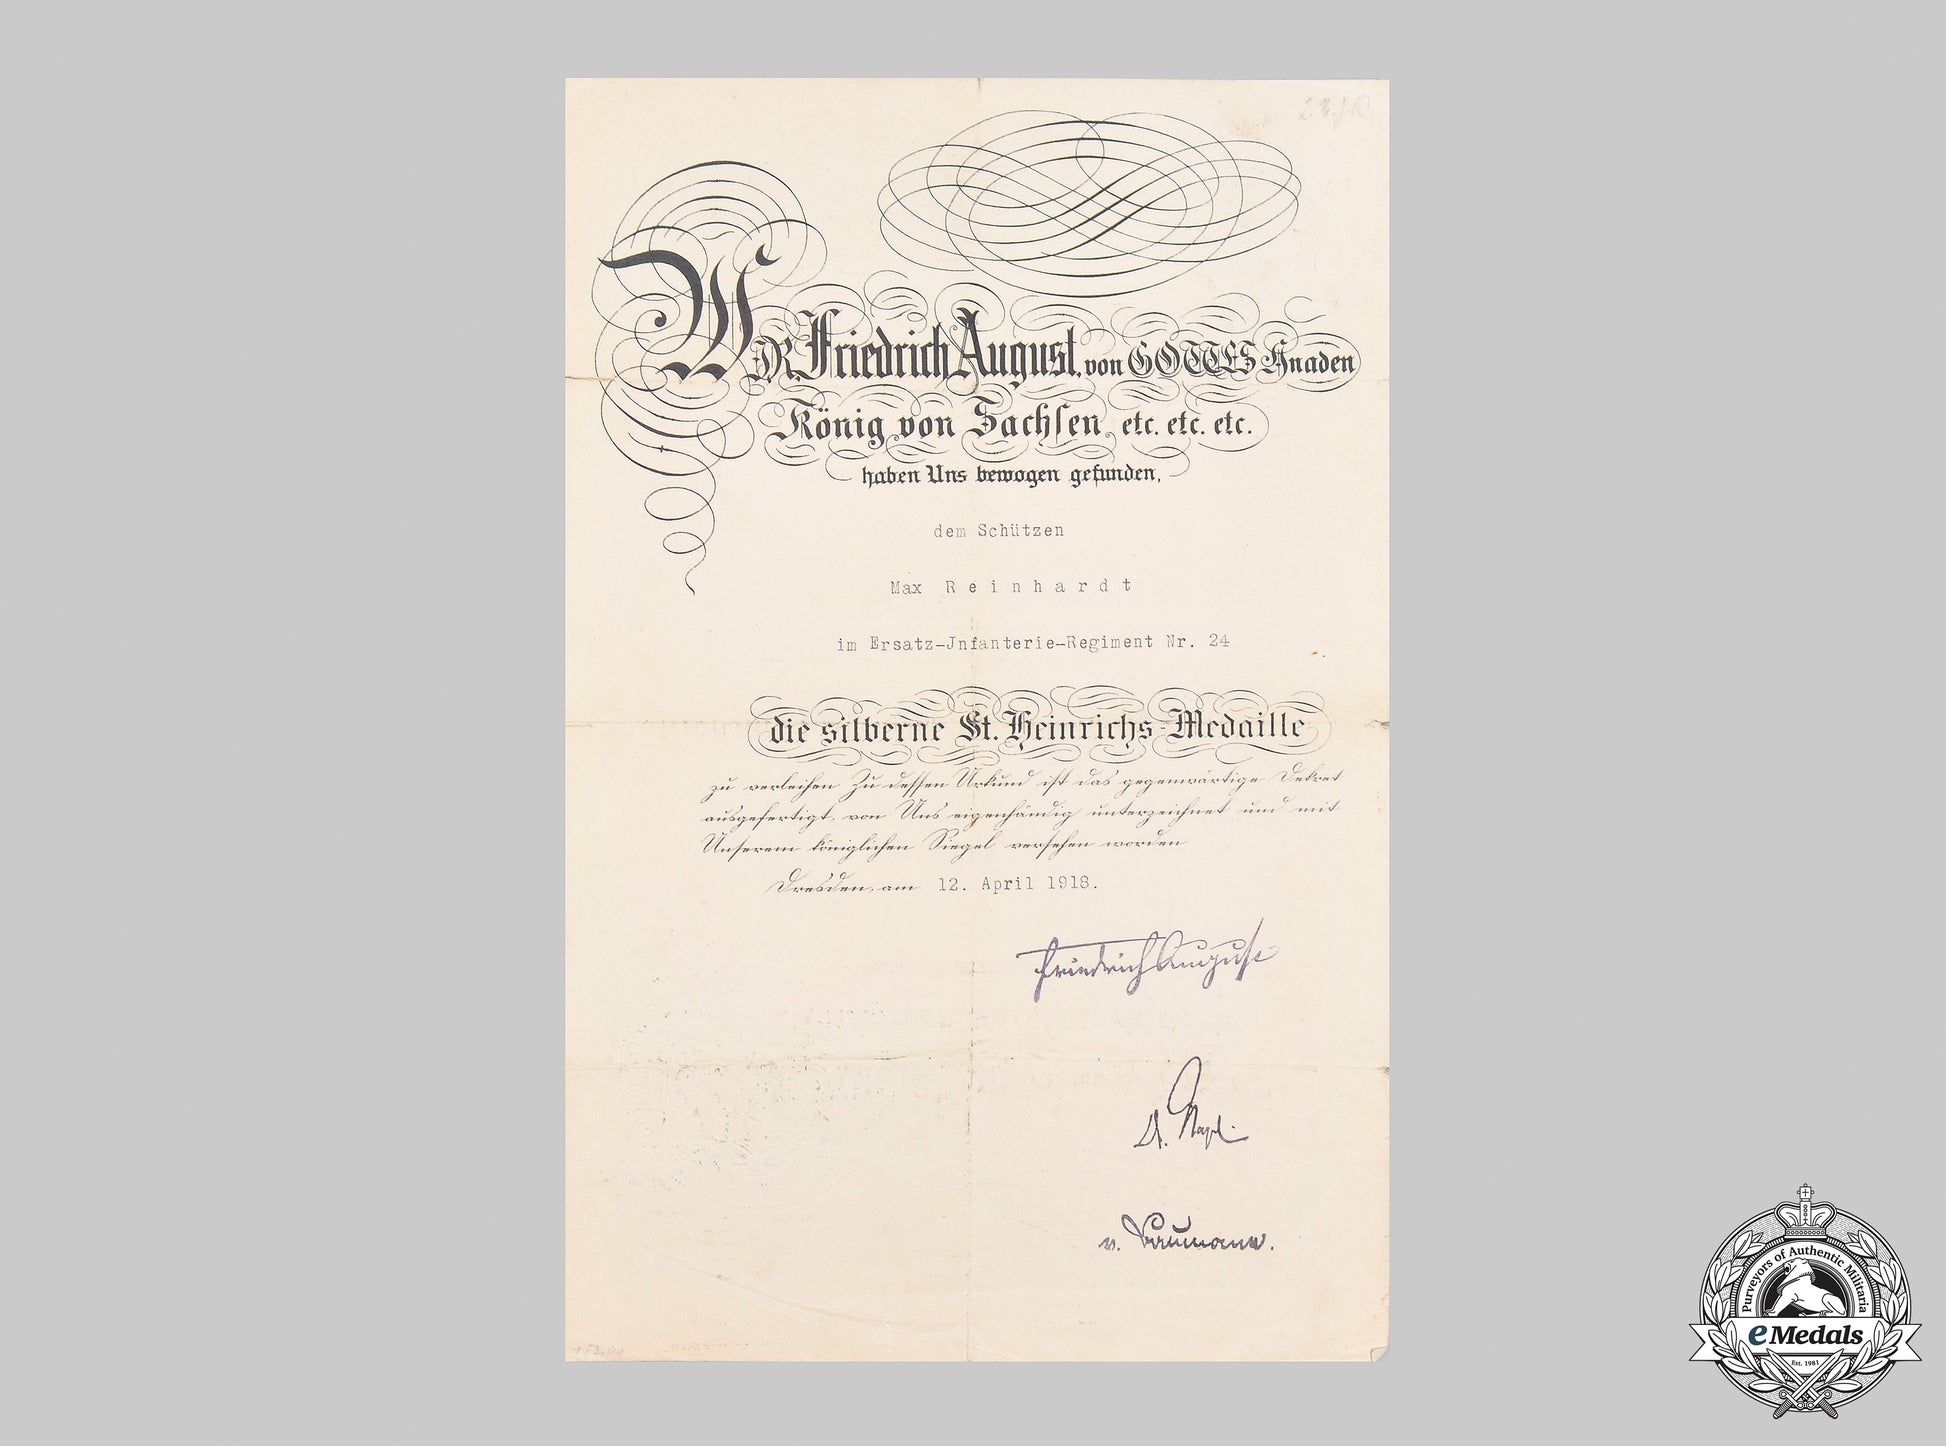 WIR, Friedrich August, von GOTTES Gnaden
König von Sachsen, etc. etc. etc.
haben Uns bewogen gefunden,
dem Schützen
Max Reinhardt
im Ersatz-Jnfanterie-Regiment Nr. 24
die silberne St. Heinrichs-Medaille
zu verleihen Zu dessen Urkund ist das gegenwärtige Dekret
ausgefertigt, von Uns eigenhändig unterzeichnet und mit
Unserem königlichen Siegel versehen worden
Dresden, am 12. April 1918.
Friedrich August
v. Baumann.
Purveyors of Authentic Militaria
eMedals
Est. 1983